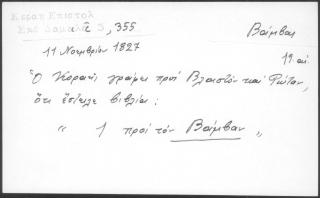 Κοραῆ Ἐπιστολ
Ἐκδ Δαμαλᾶ 3, 355
Βάμβας
11 Νοεμβρίου 1827
19 αἰ.
Ὁ Κοραῆς γράφει πρὸς Βλαστὸν καὶ Ῥώταν,
ὅτι ἔστειλε βιβλία:
" 1 πρὸς τὸν Βάμβαν "